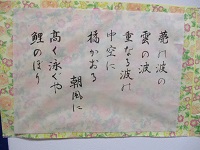 甍の波の
雲の波
重なる波の
中空に
橘かおる
朝風に
高く泳ぐや
鯉のぼり